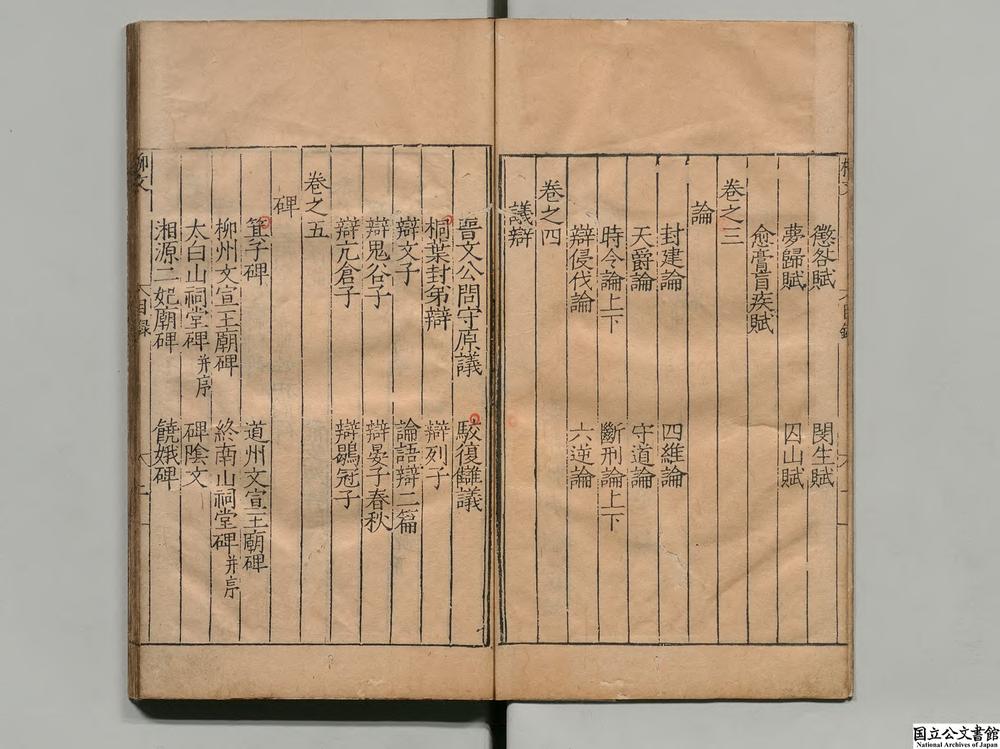 懲咎賦 閔生賦
夢歸賦 囚山賦
愈膏肓疾賦
卷之三
論
封建論 四維論
天爵論 守道論
時令論上下 斷刑論上下
辯侵伐論 六逆論
卷之四
議辯
晉文公問守原議 駁復讎議
桐葉封弟辯 辯列子
辯文子 論語辯二篇
辯鬼谷子 辯晏子春秋
辯亢倉子 辯鶡冠子
卷之五
碑
箕子碑 道州文宣王廟碑
柳州文宣王廟碑 終南山祠堂碑并序
太白山祠堂碑并序 碑陰文
湘源二妃廟碑 饒娥碑
柳文 目録
国立公文書館
National Archives of Japan